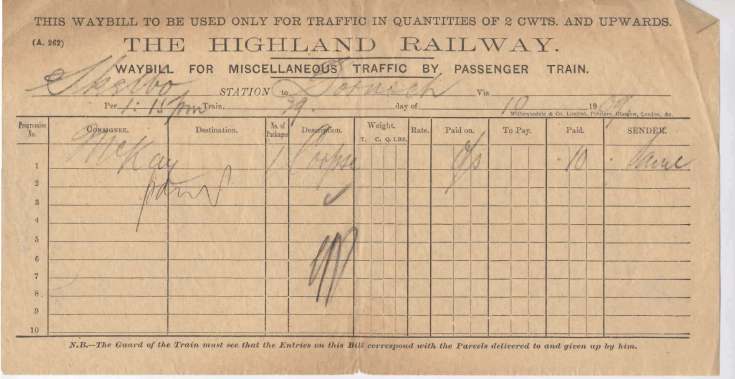 THIS WAYBILL TO BE USED ONLY FOR TRAFFIC IN QUANTITIES OF 2 CWTS. AND UPWARDS.
(A. 262)
THE HIGHLAND RAILWAY.
WAYBILL FOR MISCELLANEOUS TRAFFIC BY PASSENGER TRAIN.
Skelbo STATION to Dornoch Via
Per 1.15 pm Train. 29 day of 10 1909
Progressive No. Consignee. Destination. No. of Packages Description. Weight. Rate. Paid on. To Pay. Paid. SENDER.
T. C. Q. LBS.
1 McKay 1 Corpse O/S .10 Same
2
3
4
5
6
7
8
9
10
N.B.—The Guard of the Train must see that the Entries on this Bill correspond with the Parcels delivered to and given up by him.